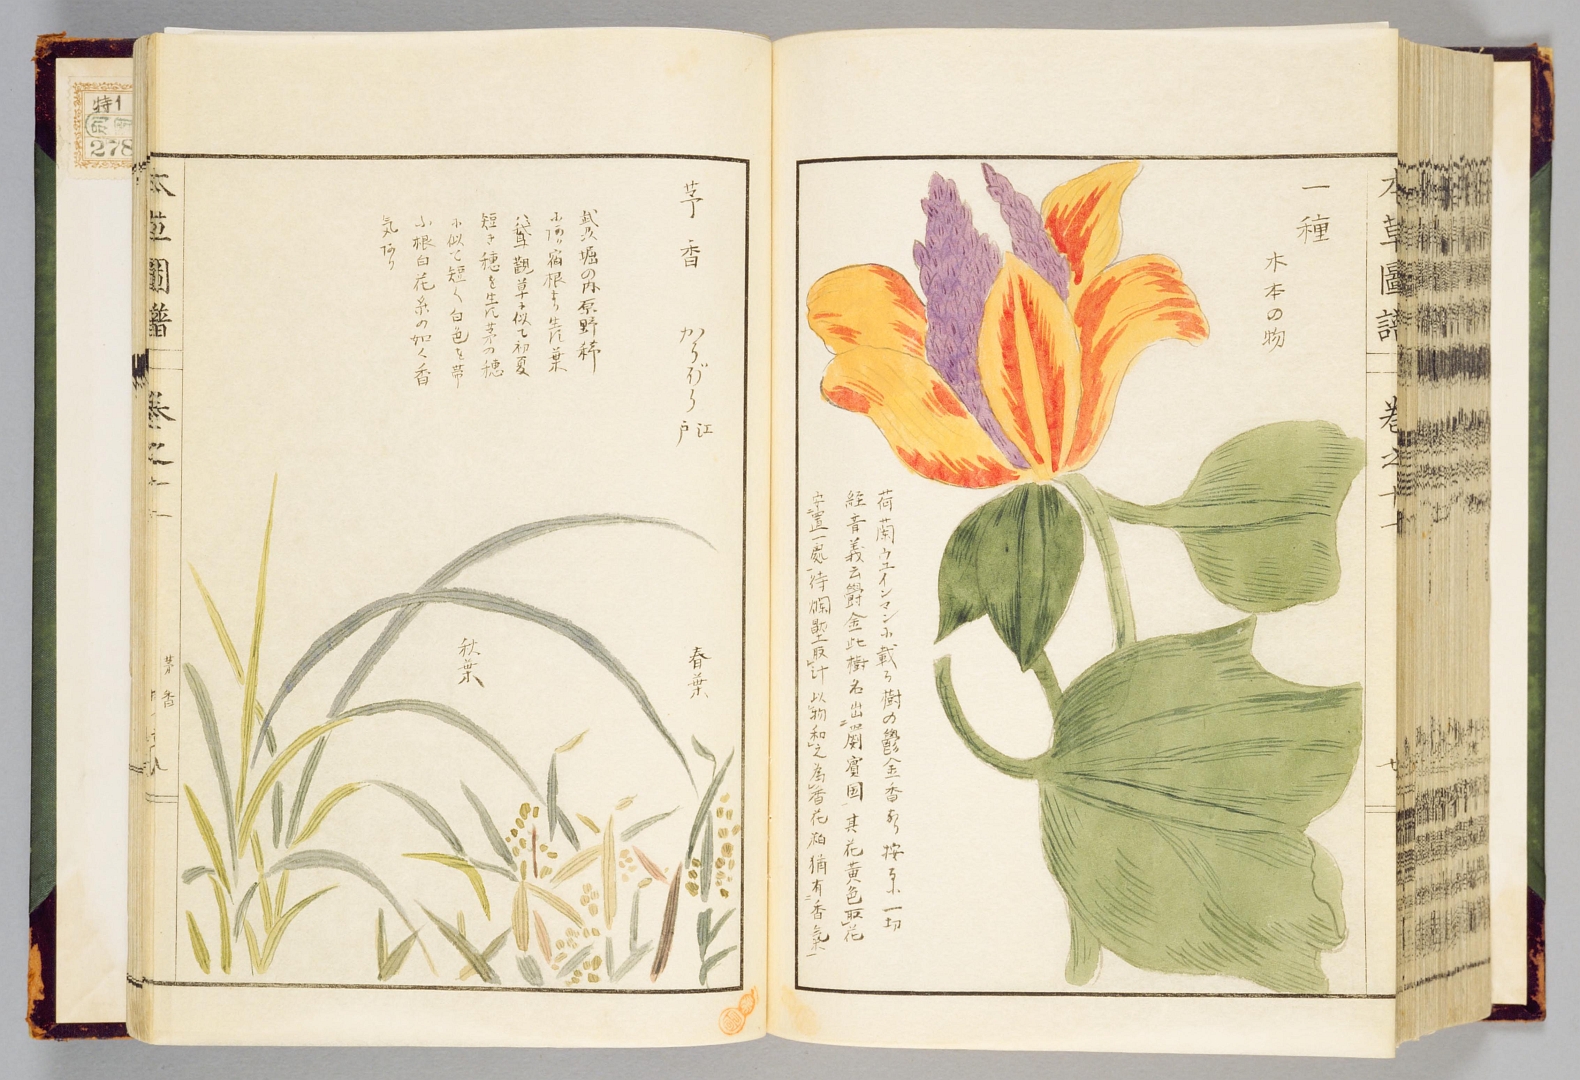 本草圖譜 卷之十一
一種
木本の物
荷蘭ウエインマンに載る樹の鬱金香あり按るに一切
経音義云欝金此樹名出罽賓国其花黄色取花
安置一處待爛壓取汁以物和之為香花粕猶有香氣
茅香
からびつら 江戸
にあり宿根より生し葉
觀草に似て初夏
短き穂を生し茅の穂
に似て短く白色を帯
ふ根白花糸の如く香
気あり
春葉
秋葉
本草圖譜 卷之十一
茅香
特1
278